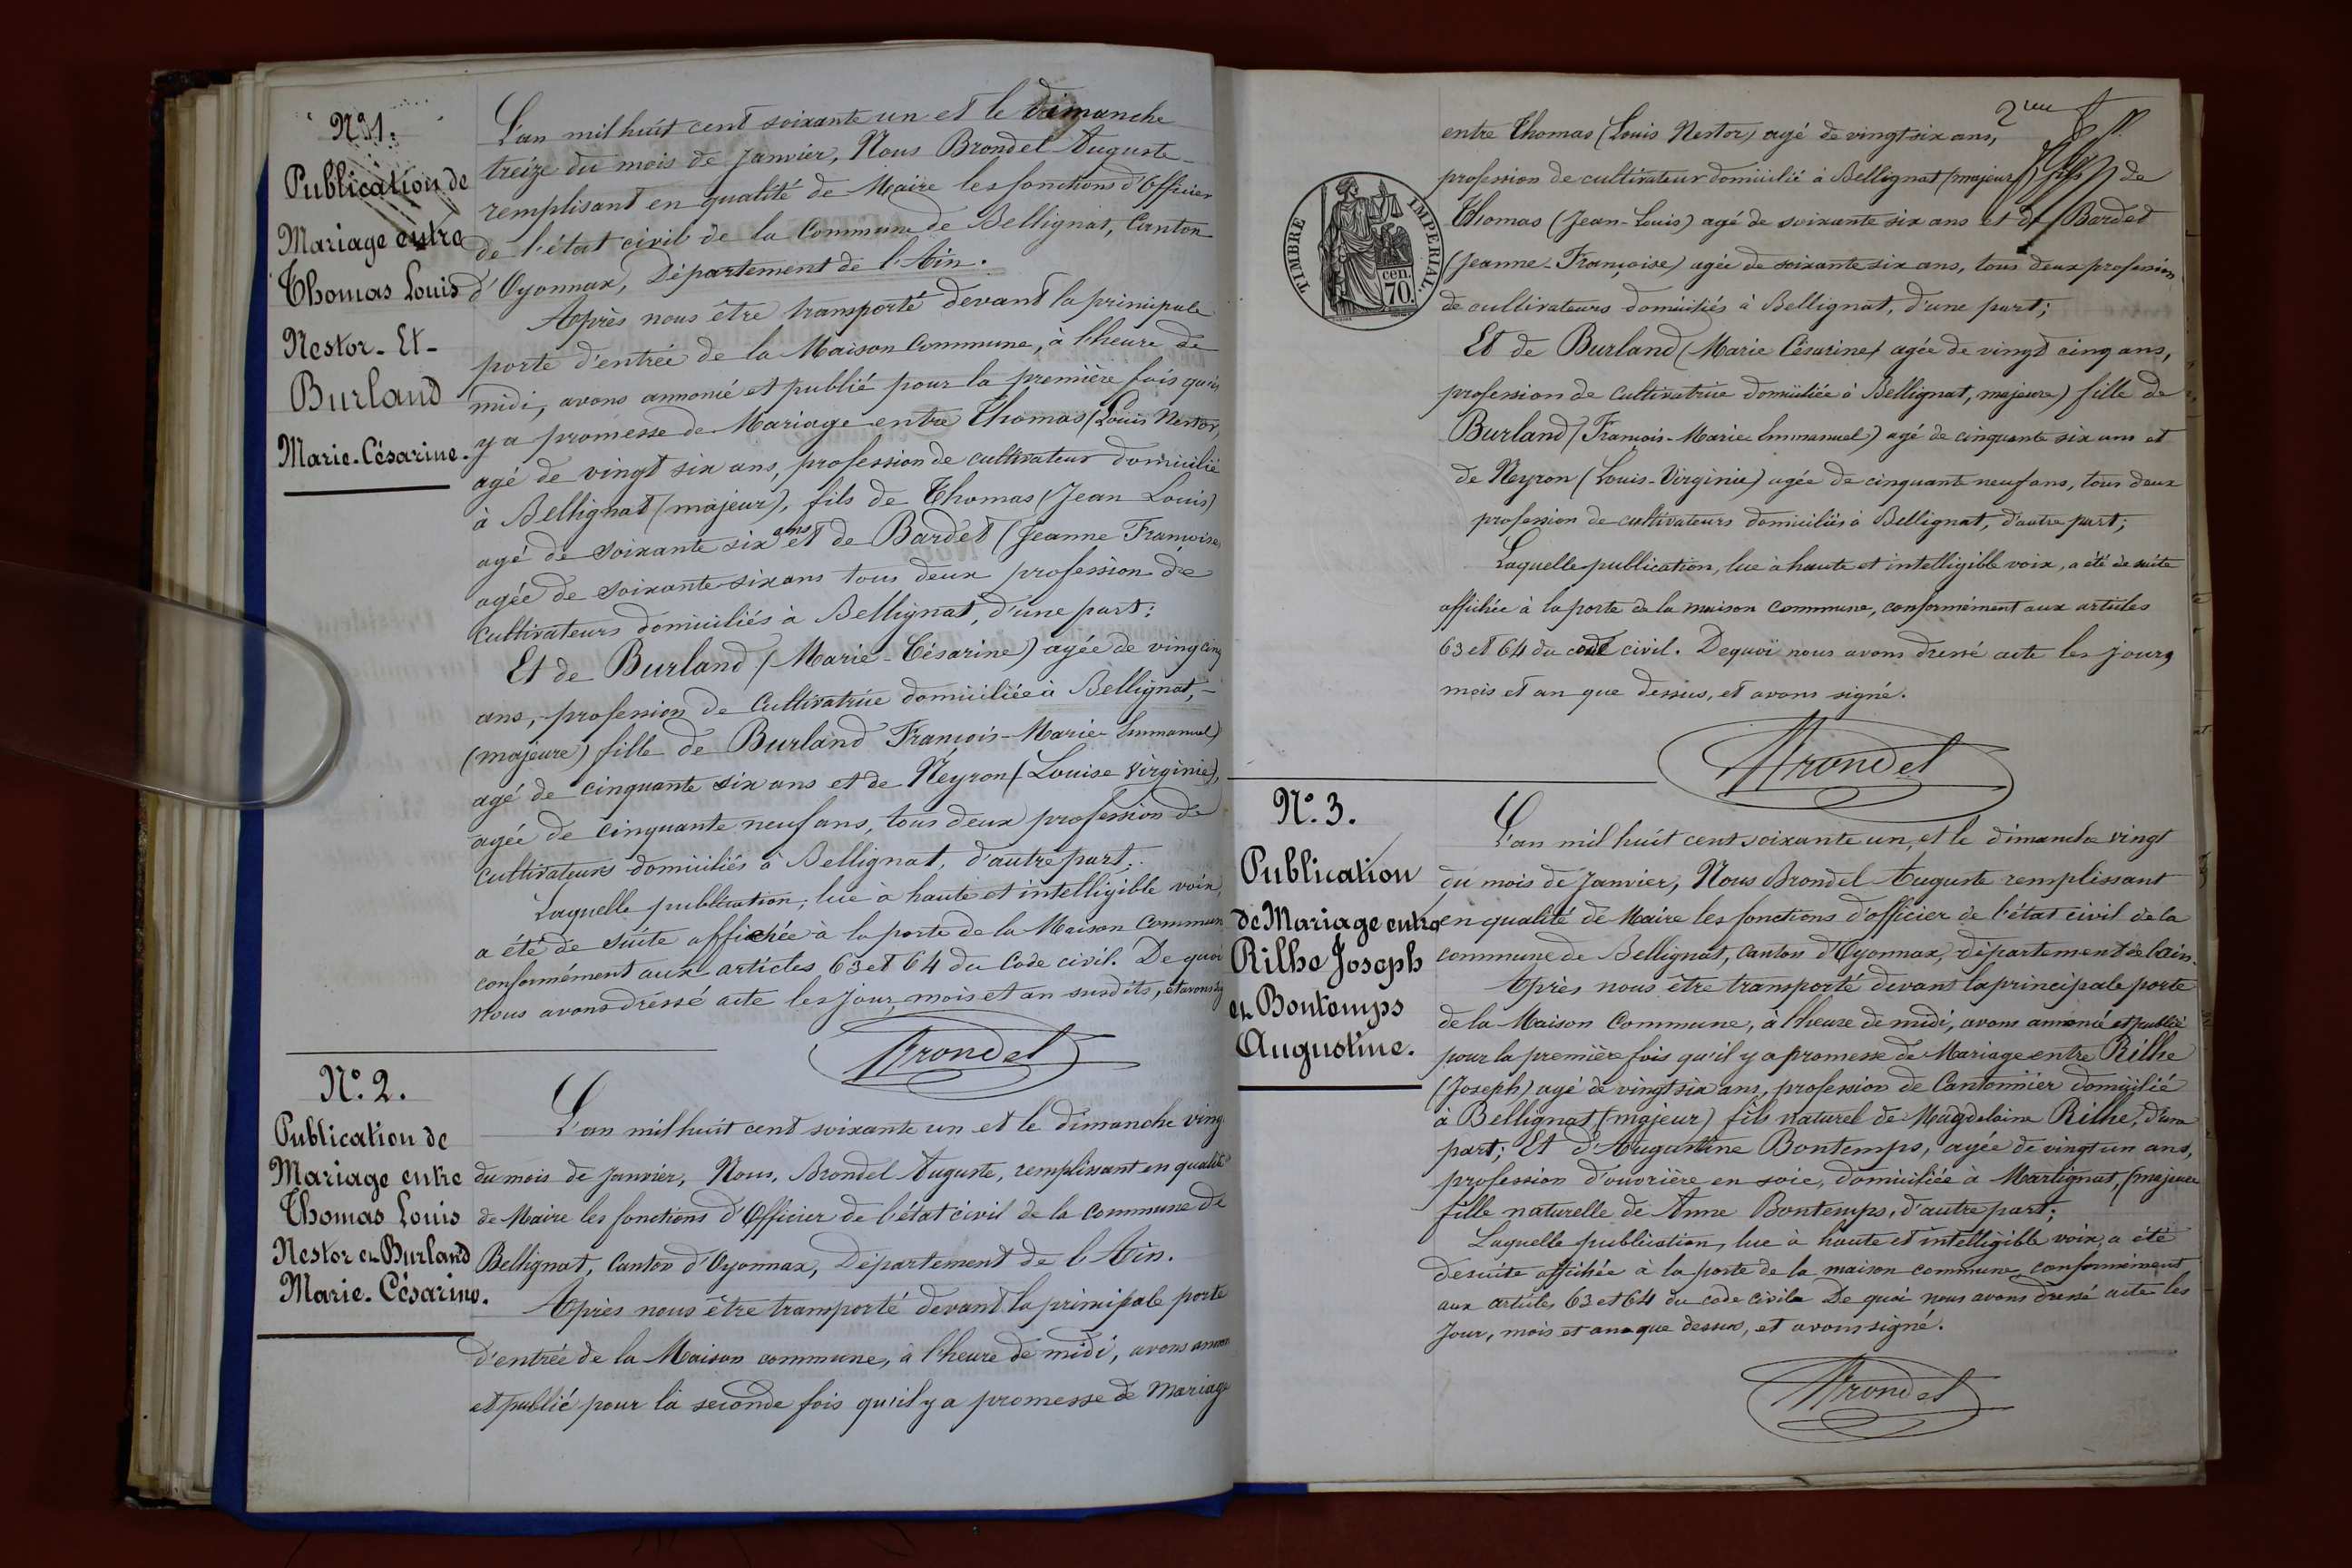 N° 1.
Publication de
Mariage entre
Thomas Louis
Nestor - Et -
Burland
Marie-Césarine.
L'an mil huit cent soixante un et le dimanche
treize du mois de Janvier, Nous Brondel Auguste
remplisant en qualité de Maire les fonctions d'Officier
de l'état civil de la Commune de Bellignat, Canton
d'Oyonnax, Département de l'Ain.
Après nous être transporté devant la principale
porte d'entrée de la Maison Commune, à l'heure de
midi, avons annoncé et publié pour la première fois qu'il
y a promesse de Mariage entre Thomas (Louis Nestor,
agé de vingt six ans, profession de cultivateur domicilié
à Bellignat (majeur), fils de Thomas (Jean Louis)
agé de soixante six ans et de Bardet (Jeanne Françoise
agée de soixante six ans tous deux profession de
cultivateurs domiciliés à Bellignat, d'une part:
Et de Burland (Marie-Césarine) agée de ving cinq
ans, profession de Cultivatrice domiciliée à Bellignat,
(majeure) fille de Burland François-Marie Emmanuel)
agé de cinquante six ans et de Neyron (Louise Virginie),
agée de cinquante neuf ans, tous deux profession de
cultivateurs domiciliés à Bellignat, d'autre part.
Laquelle publication, lue à haute et intelligible voix,
a été de suite affichée à la porte de la Maison Commun
conformément aux articles 63 et 64 du Code civil. De quoi
nous avons dréssé acte les jour, mois et an susdits, et avons sig
Brondel
N° 2.
Publication de
Mariage entre
Thomas Louis
Nestor et Burland
Marie-Césarine.
L'an mil huit cent soixante un et le dimanche ving
du mois de Janvier, Nous, Brondel Auguste, remplissant en qualité
de Maire les fonctions d'Officier de l'état civil de la Commune de
Bellignat, Canton d'Oyonnax, Département de l'Ain.
Après nous être transporté devant la principale porte
d'entrée de la Maison commune, à l'heure de midi, avons annon
et publié pour la seconde fois qu'il y a promesse de Mariage
2me
entre Thomas (Louis Nestor) agé de vingt six ans,
profession de cultivateur domicilié à Bellignat (majeur) fils de
Thomas (Jean-Louis) agé de soixante six ans et de Bardet
(Jeanne-Françoise) agée de soixante six ans, tous deux profession
de cultivateurs domiciliés à Bellignat, d'une part;
TIMBRE IMPERIAL.
cen.
70.
Et de Burland (Marie Césarine) agée de vingt cinq ans,
profession de Cultivatrice domiciliée à Bellignat, majeure) fille de
Burland (François-Marie Emmanuel) agé de cinquante six ans et
de Neyron (Louis-Virginie) agée de cinquante neuf ans, tous deux
profession de cultivateurs domiciliés à Bellignat, d'autre part;
Laquelle publication, lue à haute et intelligible voix, a été de suite
affichée à la porte de la maison commune, conformément aux articles
63 et 64 du code civil. Dequoi nous avons dressé acte les jour,
mois et an que dessus, et avons signé.
Brondel
N° 3.
Publication
de Mariage entre
Rilhe Joseph
et Bontemps
Augustine.
L'an mil huit cent soixante un, et le dimanche vingt
du mois de Janvier, Nous Brondel Auguste remplissant
en qualité de Maire les fonctions d'officier de l'état civil de la
commune de Bellignat, canton d'Oyonnax, département de l'ain.
Après nous être transporté devant la principale porte
de la Maison Commune, à l'heure de midi, avons annoncé et publié
pour la première fois qu'il y a promesse de Mariage entre Rilhe
(Joseph) agé de vingt six ans, profession de Cantonnier domicilié
à Bellignat (majeur) fils naturel de Magdelaine Rilhe, d'une
part; Et d'Augustine Bontemps, agée de vingt un ans,
profession d'ouvrière en soie, domiciliée à Martignat, (majeure
fille naturelle de Anne Bontemps, d'autre part;
Laquelle publication, lue à haute et intelligible voix, a été
desuite affichée à la porte de la maison commune conformément
aux articles 63 et 64 du code civil. De quoi nous avons dressé acte les
Jour, mois et an que dessus, et avons signé.
Brondel